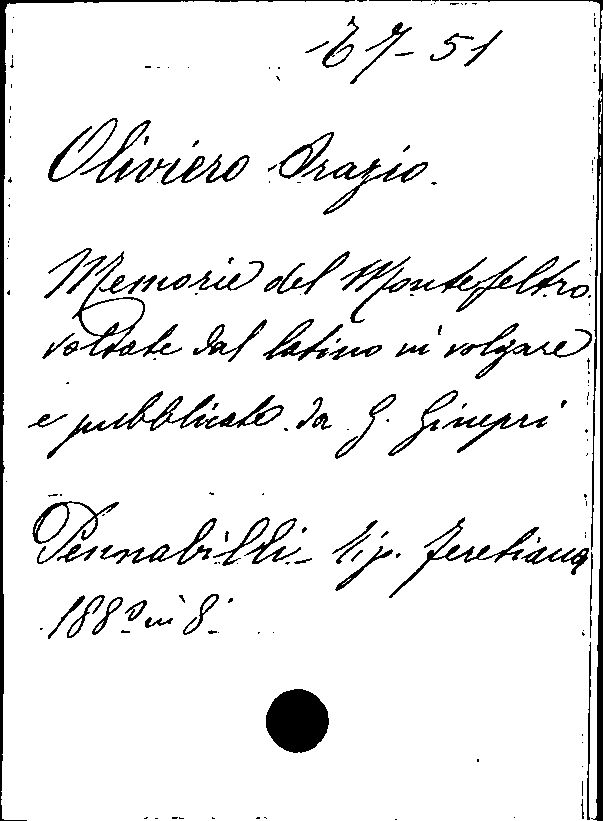 E7-51
Oliviero Orazio.
Memorie del Montefeltro
voltate dal latino in volgare
e pubblicate da G. Ginepri
Pennabilli - tip. Feretiana
in 8°